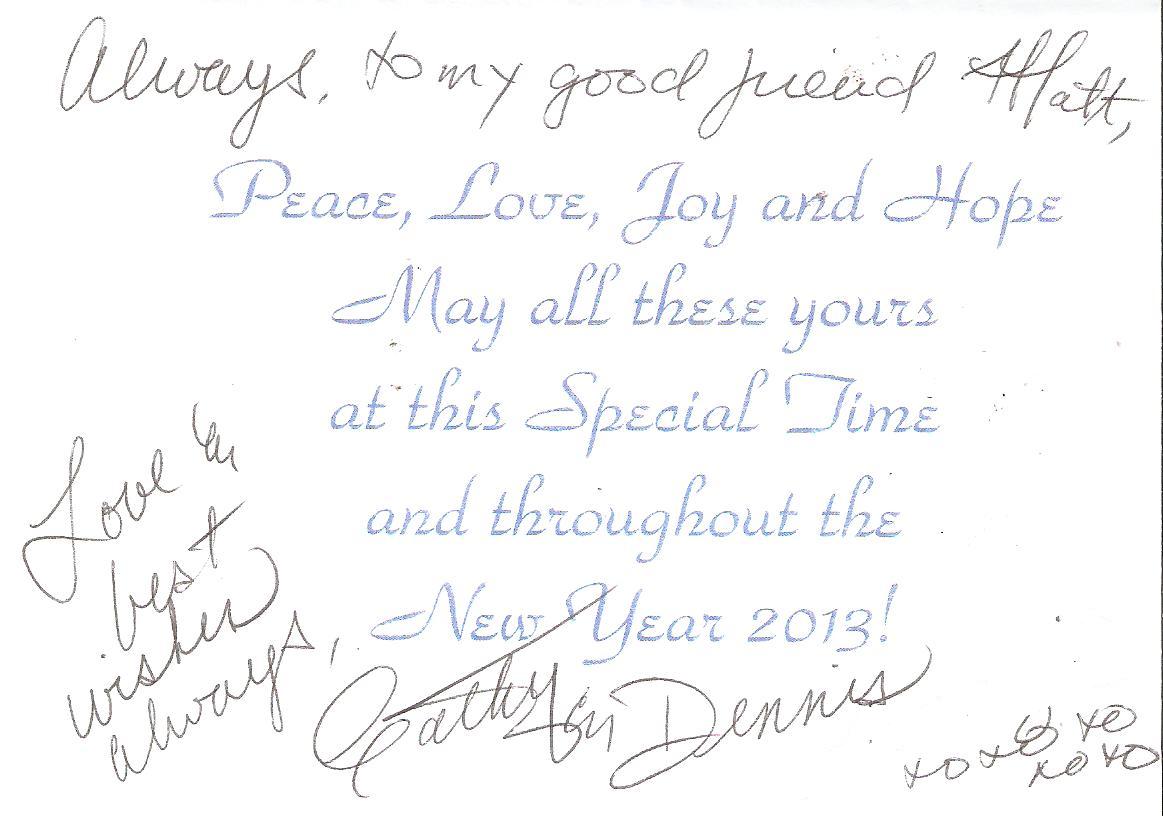 Always, to my good friend Matt,
Peace, Love, Joy and Hope
May all these yours
at this Special Time
and throughout the
New Year 2013!
Love 'n
best
wishes
always,
Cathy 'n Dennis
xoxo xo
xoxo